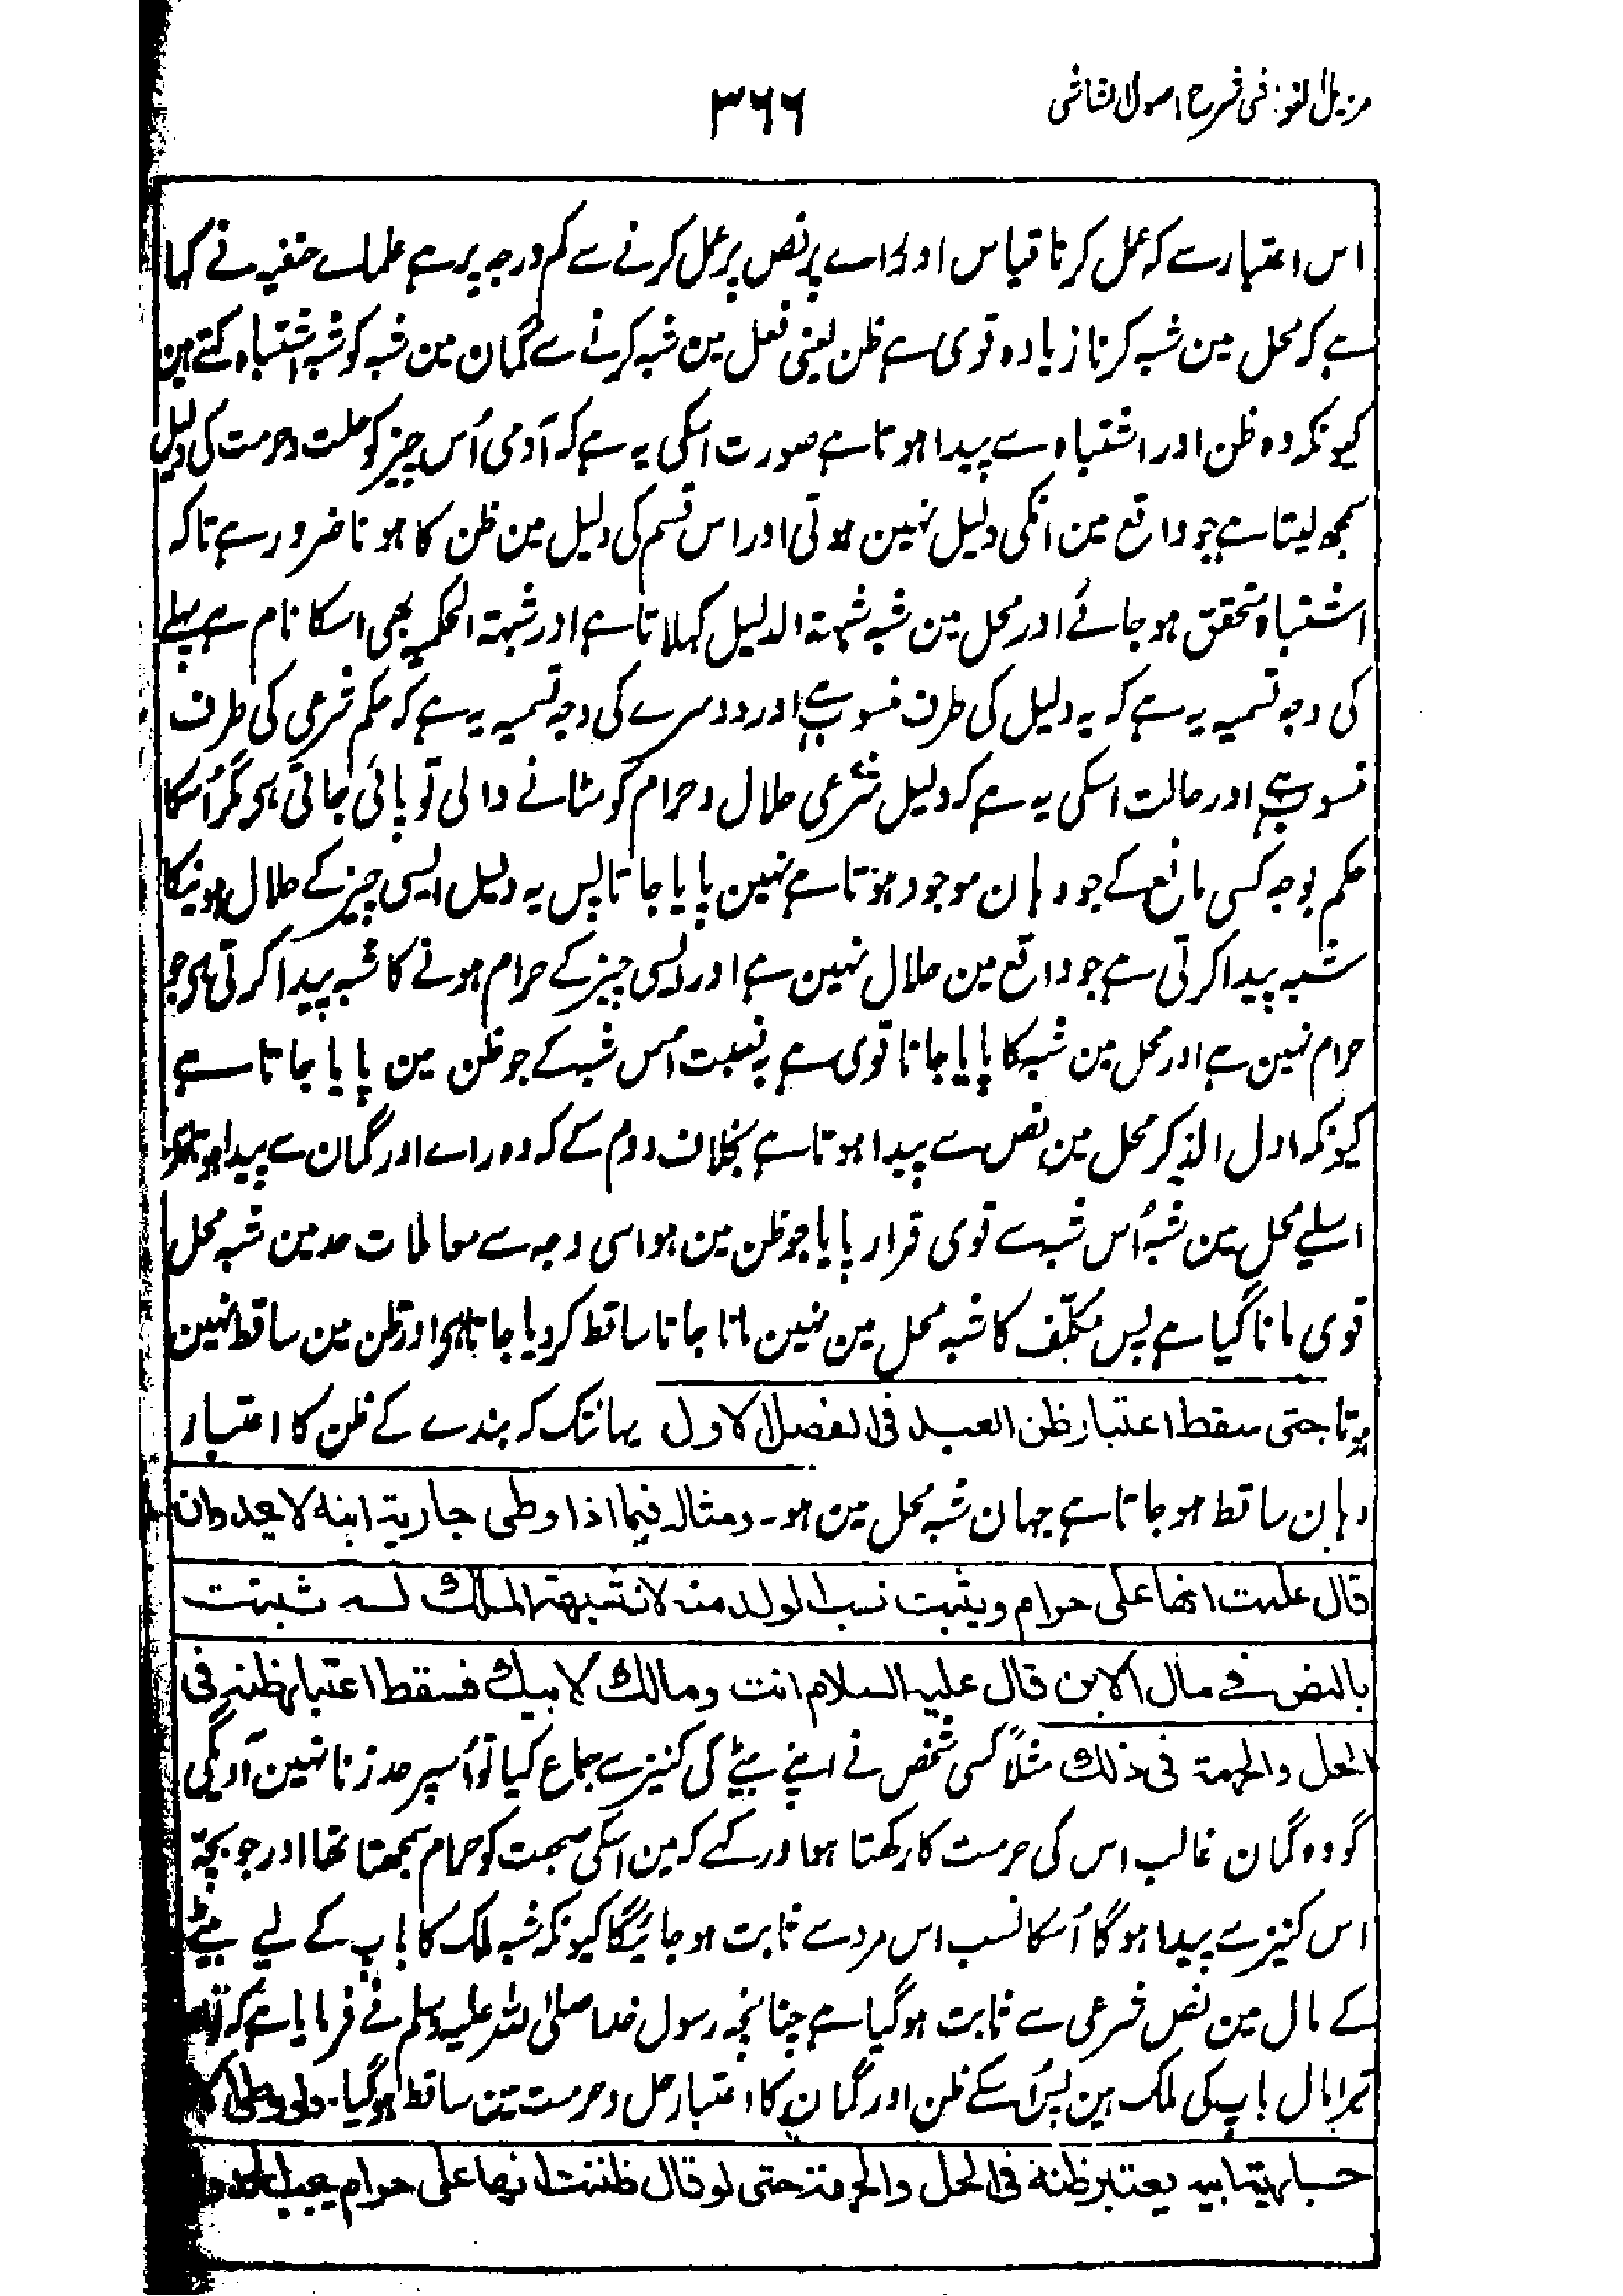 مزیل الغواشی شرح اصول الشاشی
۳۶۶
اس اعتبار سے کہ عمل کرنا قیاس اور رائے پر نص پر عمل کرنے سے کم درجہ پر ہے علماے حنفیہ نے کہا
ہے کہ محل مین شبہ کرنا زیادہ قوی ہے ظن یعنی فعل مین شبہ کرنے سے گمان مین شبہ کو شبہ اشتباہ کہتے ہین
کیونکہ وہ ظن اور اشتباہ سے پیدا ہوتا ہے صورت اسکی یہ ہے کہ آدمی اُس چیز کو حلت و حرمت کی دلیل
سمجھ لیتا ہے جو واقع مین انکی دلیل نہین ہوتی اور اس قسم کی دلیل مین ظن کا ہونا ضرور ہے تاکہ
اشتباہ متحقق ہو جائے اور محل مین شبہ شبہتہ الدلیل کہلاتا ہے اور شبہتہ الحکمیہ بھی اسکا نام ہے پہلے
کی وجہ تسمیہ یہ ہے کہ یہ دلیل کی طرف منسوب ہے اور دوسرے کی وجہ تسمیہ یہ ہے کہ حکم شرعی کی طرف
منسوب ہے اور حالت اسکی یہ ہے کہ دلیل شرعی حلال و حرام کو مٹانے والی تو پائی جاتی ہی مگر اُسکا
حکم بوجہ کسی مانع کے جو وہان موجود ہوتا ہے نہین پایا جاتا پس یہ دلیل ایسی چیز کے حلال ہونیکا
شبہ پیدا کرتی ہے جو واقع مین حلال نہین ہے اور ایسی چیز کے حرام ہونے کا شبہ پیدا کرتی ہی جو
حرام نہین ہے اور محل مین شبہ کا پایا جانا قوی ہے بہ نسبت اُس شبہ کے جو ظن مین پایا جاتا ہے
کیونکہ اول الذکر محل مین نص سے پیدا ہوتا ہے بخلاف دوم کے کہ وہ راے اور گمان سے پیدا ہوتا ہی
اسلیے محل مین شبہ اُس شبہ سے قوی قرار پایا جو ظن مین ہو اسی وجہ سے معاملات حد مین شبہ محل
قوی مانا گیا ہے پس مکلّف کا شبہ محل مین نہین مانا جاتا ساقط کردیا جاتا ہی اور ظن مین ساقط نہین
ہوتا حتی سقط اعتبار ظن العبد فی الفصل الاول یہانتک کہ بندے کے ظن کا اعتبار
وہان ساقط ہو جاتا ہے جہان شبہ محل مین ہو۔ ومثالہ فیما اذا وطی جاریۃ ابنہ لا یحد وان
قال علمت انھا علی حرام ویثبت نسب الولد منہ لان شبھۃ الملک لہ ثبتت
بالنص فے مال الابن قال علیہ السلام انت ومالک لابیک فسقط اعتبار ظنہ فی
الحل والحرمۃ فی ذلک مثلاً کسی شخص نے اپنے بیٹے کی کنیز سے جماع کیا تو اُسپر حد زنا نہین آویگی
گو وہ گمان غالب اس کی حرمت کا رکھتا ہو اور کہے کہ مین اسکی صحبت کو حرام سمجھتا تھا اور جو بچّہ
اس کنیز سے پیدا ہوگا اُسکا نسب اس مرد سے ثابت ہو جائیگا کیونکہ شبہ ملک کا باپ کے لیے بیٹے
کے مال مین نص شرعی سے ثابت ہوگیا ہے چنانچہ رسول خدا صلی اللہ علیہ وسلم نے فرمایا ہے کہ
تیرا مال باپ کی ملک ہین پس اُسکے ظن اور گمان کا اعتبار حل و حرمت مین ساقط ہوگیا۔ ولو وطی
جاریۃ ابیہ یعتبر ظنہ فی الحل والحرمۃ حتی لو قال ظننت انھا علی حرام یجب الحد